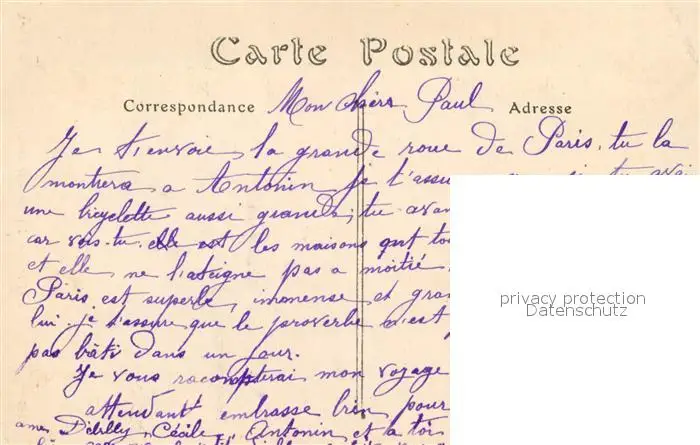 Carte Postale
Correspondance Mon chère Paul Adresse
Je t'envoie la grande roue de Paris. tu la
montrera a Antonin je t'assu
une bicyclette aussi grande, tu avan
car vois-tu elle est les maisons qui to
et elle ne l'ateigne pas a moitié.
Paris est superbe, immense et gran
lui. je t'assure que le proverbe n'est
pas bâti dans un jour.
Je vous raconterai mon voyage
attendant embrasse bien pour
Cécile, Antonin et a toi
privacy protection
Datenschutz